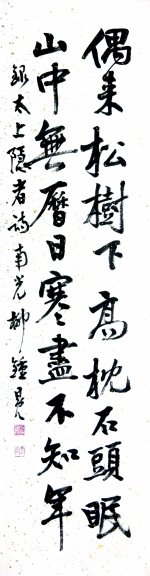 偶来松樹下高枕石頭眠
山中無曆日寒盡不知年
録太上隱者詩南光柳鍾昊